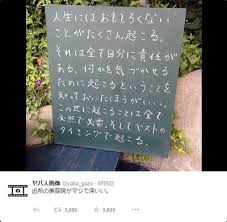 人生にはおもしろくない
ことがたくさん起こる。
それは全て自分に責任が
ある。何かを気づかせる
ために起こるということを
知っておいたほうがいい。
この世に起こることは全て
必然で必要、そしてベストの
タイミングで起こる。
ヤバ人画像 @yaba_gazo
近所の美容院がマジで深いい。